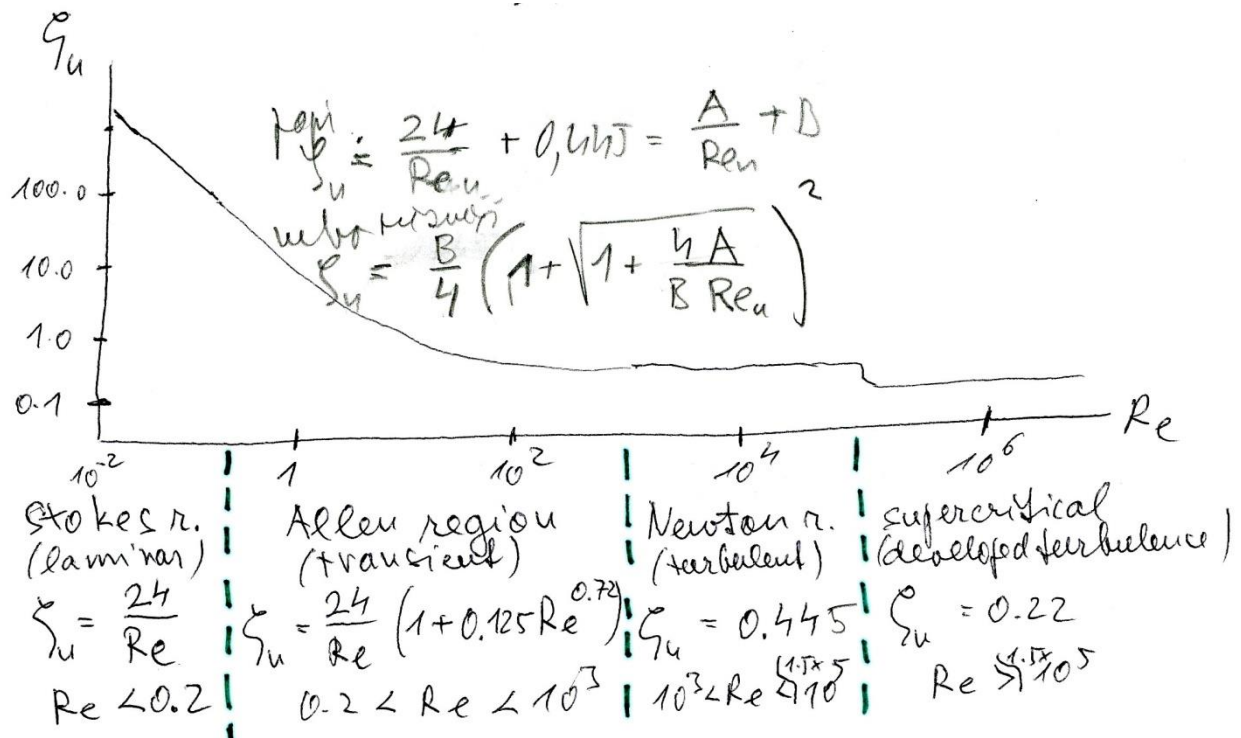 ζu
ζu ≐ 24/Reu + 0,445 = A/Reu + B
nebo
ζu = B/4 (1+√(1+ 4A/(B Reu)))²
100.0
10.0
1.0
0.1
Re
10⁻² 1 10² 10⁴ 10⁶
Stokes r.
(laminar)
ζu = 24/Re
Re < 0.2
Allen region
(transient)
ζu = 24/Re (1+0.125Re^0.72)
0.2 < Re < 10³
Newton r.
(turbulent)
ζu = 0.445
10³ < Re < 1.5x10⁵
supercritical
(developed turbulence)
ζu = 0.22
Re > 1.5x10⁵